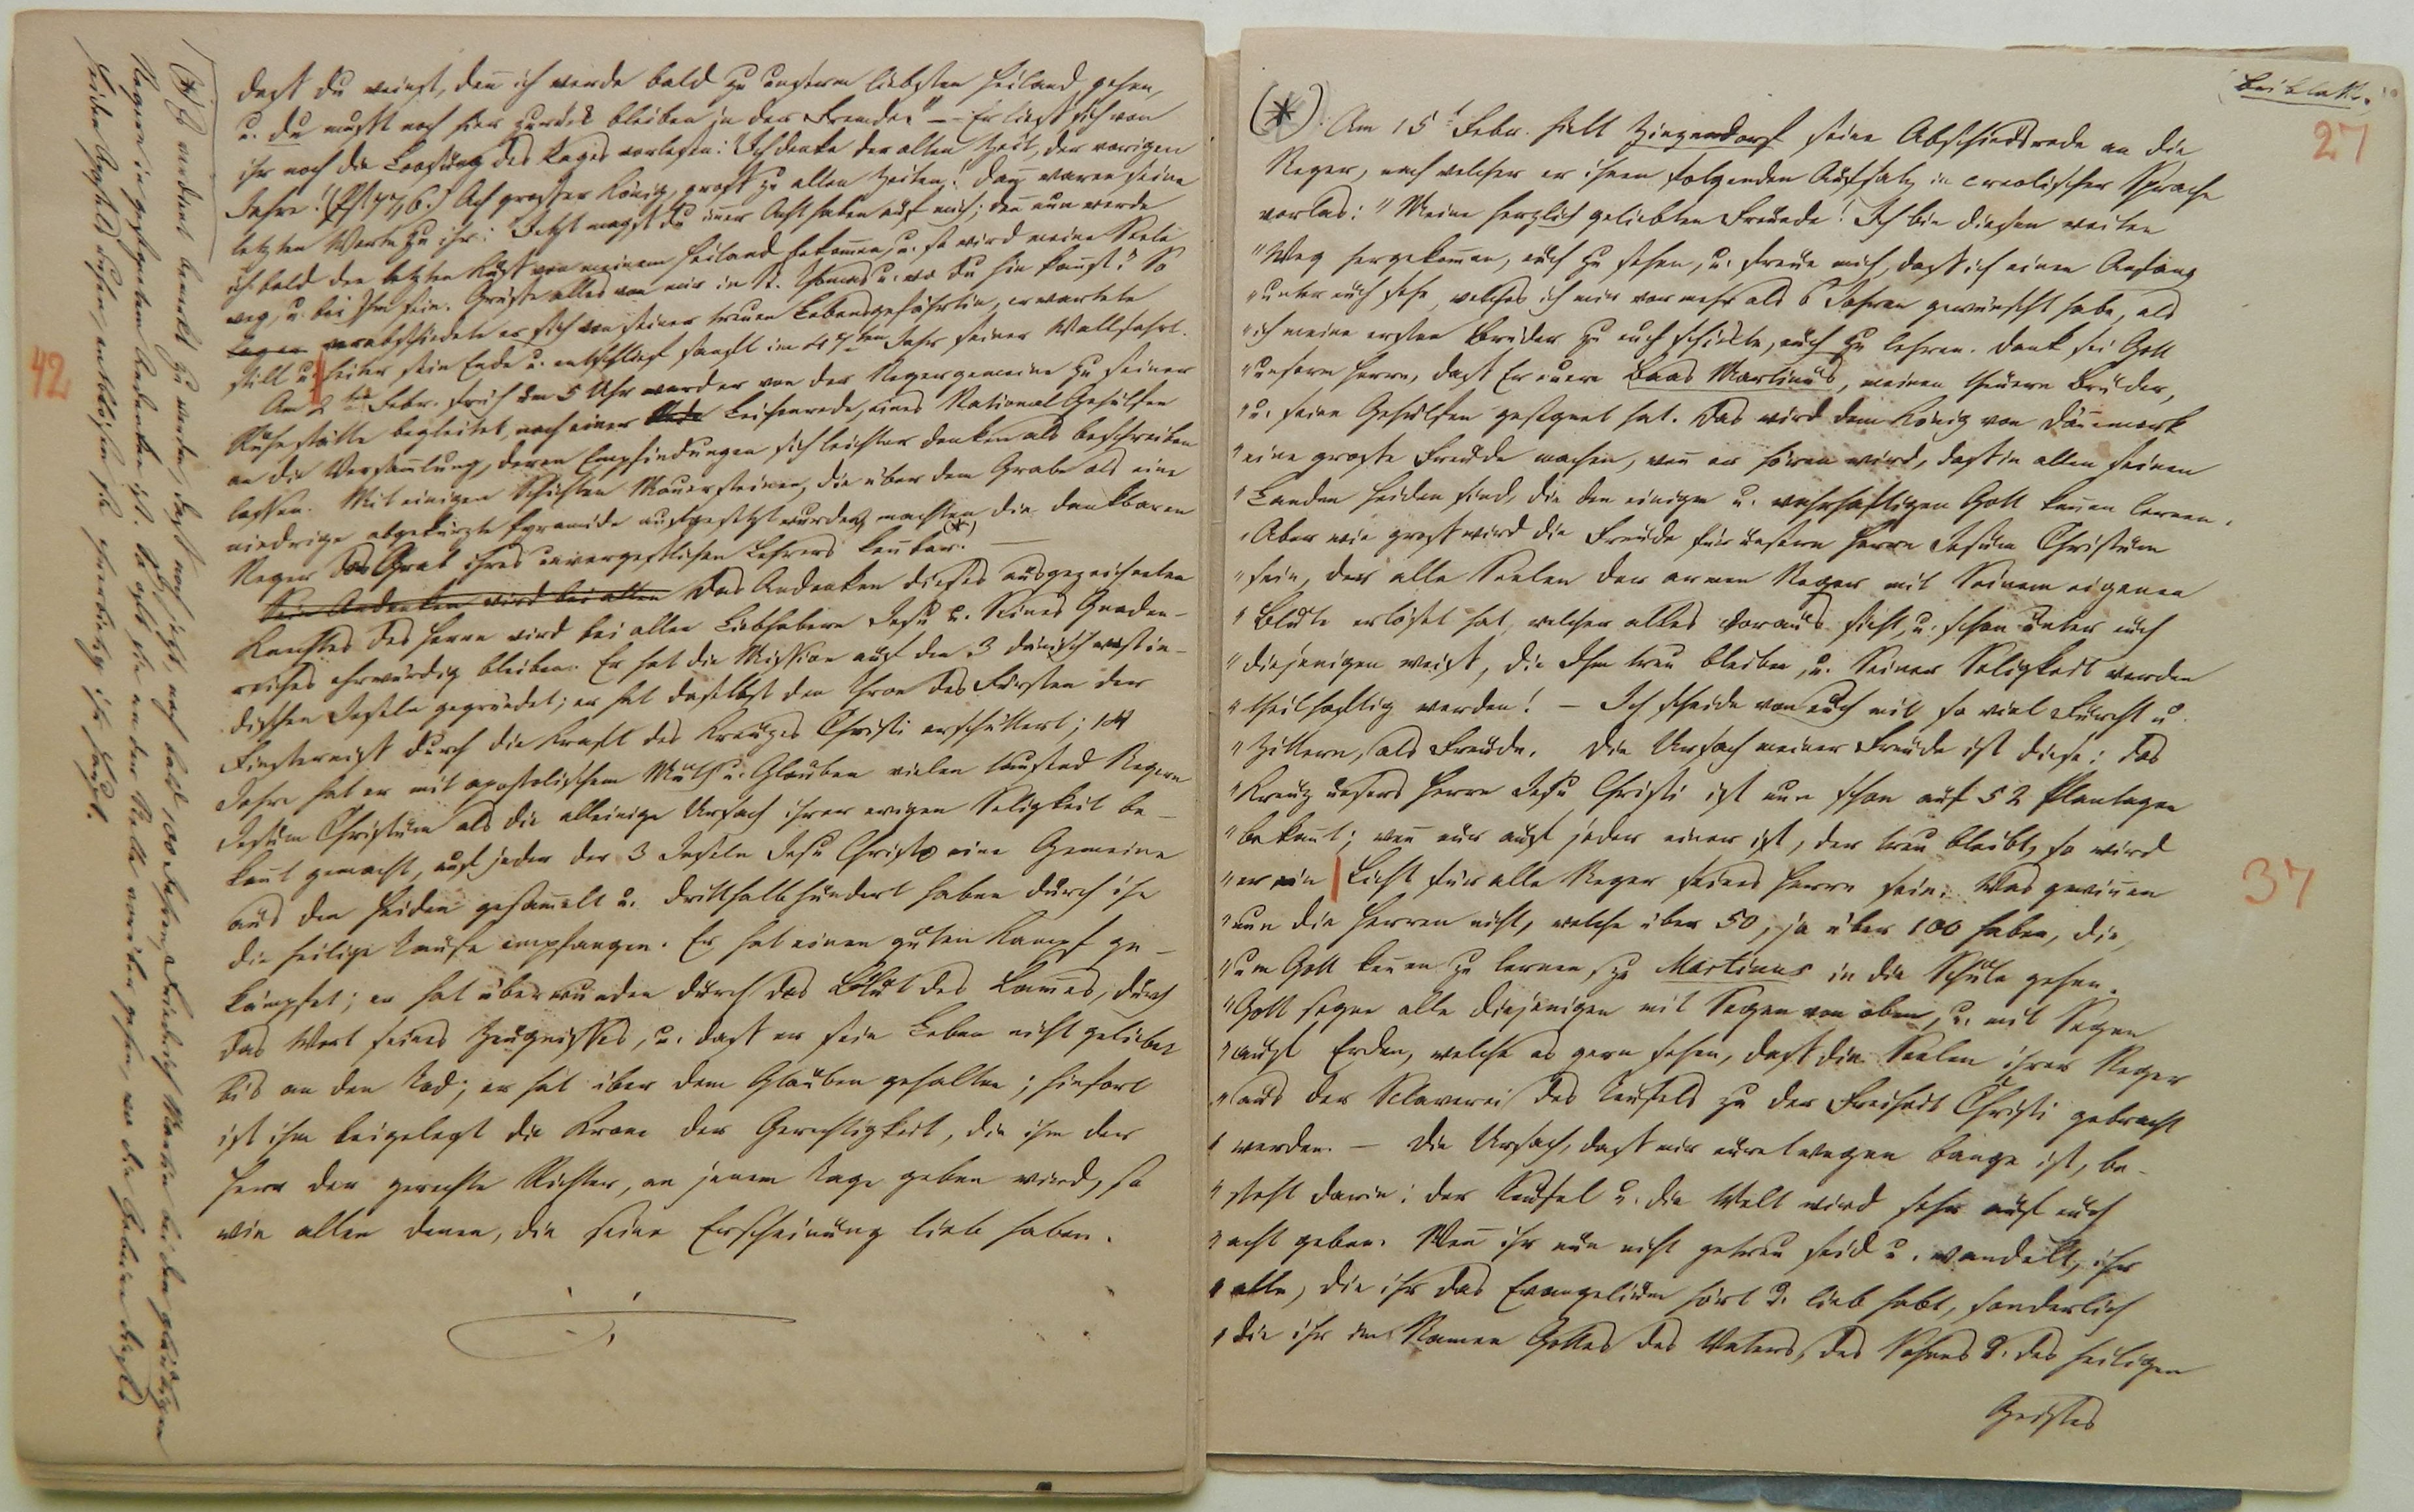 daß du weinst, den̄ ich werde bald zu unserm liebsten Heiland gehen,
u. du mußt noch hier zurück bleiben in der Fremde." — Er ließ sich von
ihr noch die Loosung des Tages vorlesen: "Ich denke der alten Zeit, der vorigen
Jahre! (Ps. 77, 6.) Ach grosser König, groß zu allen Zeiten! Dan̄ waren seine
letzten Worte zu ihr: Jetzt magst du im̄er Acht haben auf mich; den̄ nun werde
ich bald den letzten Kuß von meinem Heiland bekom̄en, u. so wird meine Seele
weg, u. bei Ihm sein. Grüsse alles von mir in St. Thomas u. wo du hin kom̄st." So
verabschiedete er sich von seiner treuen Lebensgefährtin, erwartete
still u. heiter sein Ende u. entschlief sanft im 47ten Jahr seiner Wallfahrt.
Am 2ten Febr. früh um 5 Uhr ward er von der Negergemeine zu seiner
Ruhestätte begleitet, nach einer Leichenrede, eines National Gehülfen
an die Versam̄lung, deren Empfindungen sich leichter denken als beschreiben
lassen. Mit einigen Schichten Mauersteinen, die über dem Grabe als eine
niedrige abgekürzte Pyramide aufgesetzt wurden, machten die dankbaren
Neger das Grab ihres unvergeßlichen Lehrers ken̄bar. (*) —
Sein Andenken wird bei allen Das Andenken dieses ausgezeichneten
Knechtes des Herrn wird bei allen Liebhabern Jesu u. Seines Gnaden-
reiches ehrwürdig bleiben. Er hat die Mission auf den 3 dänisch westin-
dischen Inseln gegründet; er hat daselbst den Thron des Fürsten der
Finsterniß durch die Kraft des Kreuzes Christi erschüttert; 14
Jahre hat er mit apostolischem Muth u. Glauben vielen tausend Negern
Jesum Christum als die alleinige Ursach ihrer ewigen Seligkeit be-
kan̄t gemacht, auf jeder der 3 Inseln Jesu Christo eine Gemeine
aus den Heiden gesam̄elt u. dritthalbhundert haben durch ihn
die heilige Taufe empfangen. Er hat einen guten Kampf ge-
kämpfet; er hat überwunden durch das Blut des Lam̄es, durch
das Wort seines Zeugnisses, u. daß er sein Leben nicht geliebet
bis an den Tod; er hat über dem Glauben gehalten; hinfort
ist ihm beigelegt die Krone der Gerechtigkeit, die ihm der
Herr der gerechte Richter, an jenem Tage geben wird, so
wie allen denen, die seine Erscheinung lieb haben.
42
(*) Es verdient bemerkt zu werden, daß noch jetzt, nach bald 100 Jahren, Friedrich Martin bei den gläubigen
Negern in gesegnetem Andenken ist. So oft sie an der Stelle vorüber gehen, wo die Gebeine dieses
Heiden Apostels ruhen, entblößen sie ehrerbietig ihr Haupt.
Beiblatt.
27
(*) Am 15t Febr. hielt Zinzendorf seine Abschiedsrede an die
Neger, nach welcher er ihnen folgenden Aufsatz in creolischer Sprache
vorlas: "Meine herzlich geliebten Freunde! Ich bin diesen weiten
"Weg hergekom̄en, euch zu sehen, u. freue mich, daß ich einen Anfang
"unter euch sehe, welches ich mir vor mehr als 6 Jahren gewünscht habe, als
"ich meine ersten Brüder zu euch schickte, euch zu lehren. Dank sei Gott
"unserm Herrn, daß Er euern Baas Martinus, meinen theuern Bruder,
"u. seine Gehülfen gesegnet hat. Das wird dem König von Dän̄emark
"eine grosse Freude machen, wen̄ er hören wird, daß in allen seinen
"Landen Heiden sind, die den einigen u. wahrhaftigen Gott ken̄en lernen.
"Aber wie groß wird die Freude für unsern Herrn Jesum Christum
"sein, der alle Seelen der armen Neger mit Seinem eigenen
"Blute erlöset hat, welcher alles voraus sieht, u. schon unter euch
"diejenigen weiß, die Ihm treu bleiben, u. Seiner Seligkeit werden
"theilhaftig werden! — Ich scheide von euch mit so viel Furcht u.
"Zittern, als Freude. Die Ursach meiner Freude ist diese: das
"Kreuz unsers Herrn Jesu Christi ist nun schon auf 52 Plantagen
"bekan̄t; wen̄ nur auf jeder einer ist, der treu bleibt, so wird
"er ein Licht für alle Neger seines Herrn sein. Was gewin̄en
37
"nun die Herren nicht, welche über 50, ja über 100 haben, die,
"um Gott ken̄en zu lernen, zu Martinus in die Schule gehen.
"Gott segne alle diejenigen mit Segen von oben, u. mit Segen
"auf Erden, welche es gern sehen, daß die Seelen ihrer Neger
"aus der Sclaverei des Teufels zu der Freiheit Christi gebracht
"werden. — Die Ursach, daß mir euretwegen bange ist, be-
"steht darin: der Teufel u. die Welt wird sehr auf euch
"acht geben. Wen̄ ihr nun nicht getreu seid u. wandelt, ihr
"alle, die ihr das Evangelium hört u. lieb habt, sonderlich
"die ihr im Namen Gottes des Vaters, des Sohnes u. des heiligen
Geistes